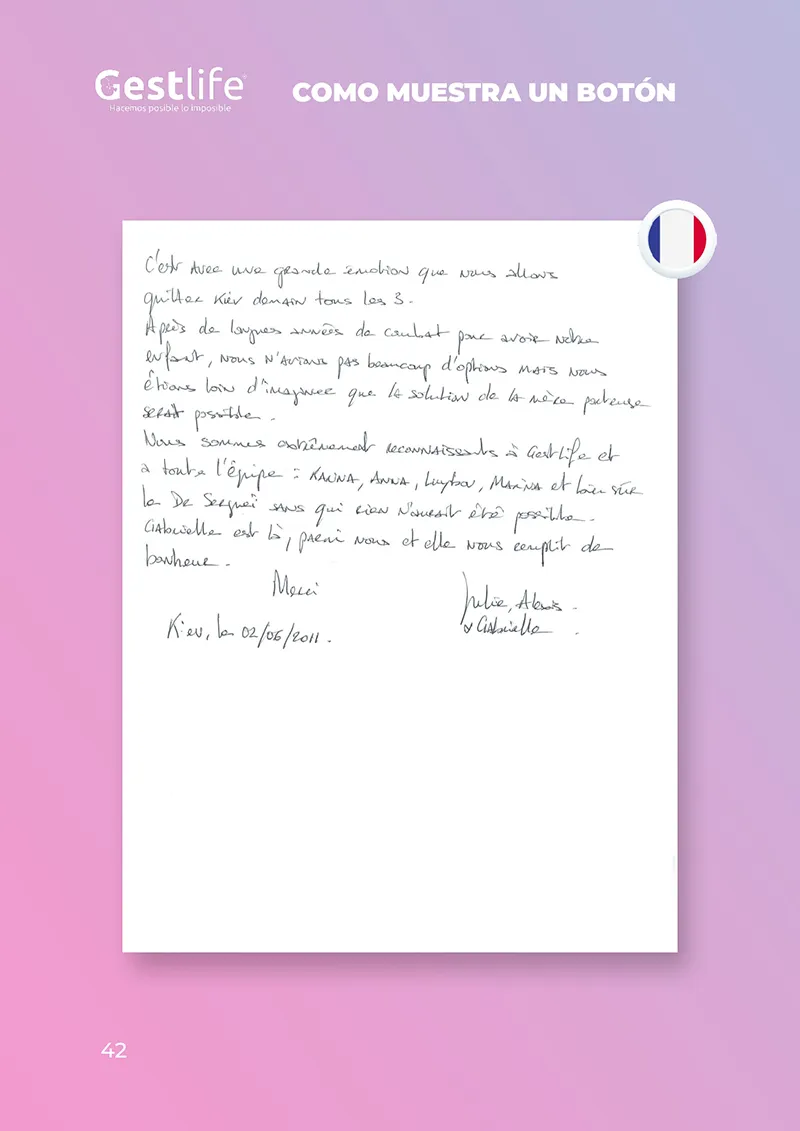 Gestlife
Hacemos posible lo imposible
COMO MUESTRA UN BOTÓN
C'est avec une grande émotion que nous allons
quitter Kiev demain tous les 3.
Après de longues années de combat pour avoir notre
enfant, nous n'avions pas beaucoup d'options mais nous
étions loin d'imaginer que la solution de la mère porteuse
serait possible.
Nous sommes extrêmement reconnaissants à Gestlife et
à toute l'équipe : Karina, Anna, Luybov, Marina et bien sûr
le Dr Sergueï sans qui rien n'aurait été possible.
Gabrielle est là, parmi nous et elle nous remplit de
bonheur.
Merci
Julie, Alexis
& Gabrielle
Kiev, le 02/06/2011.
42